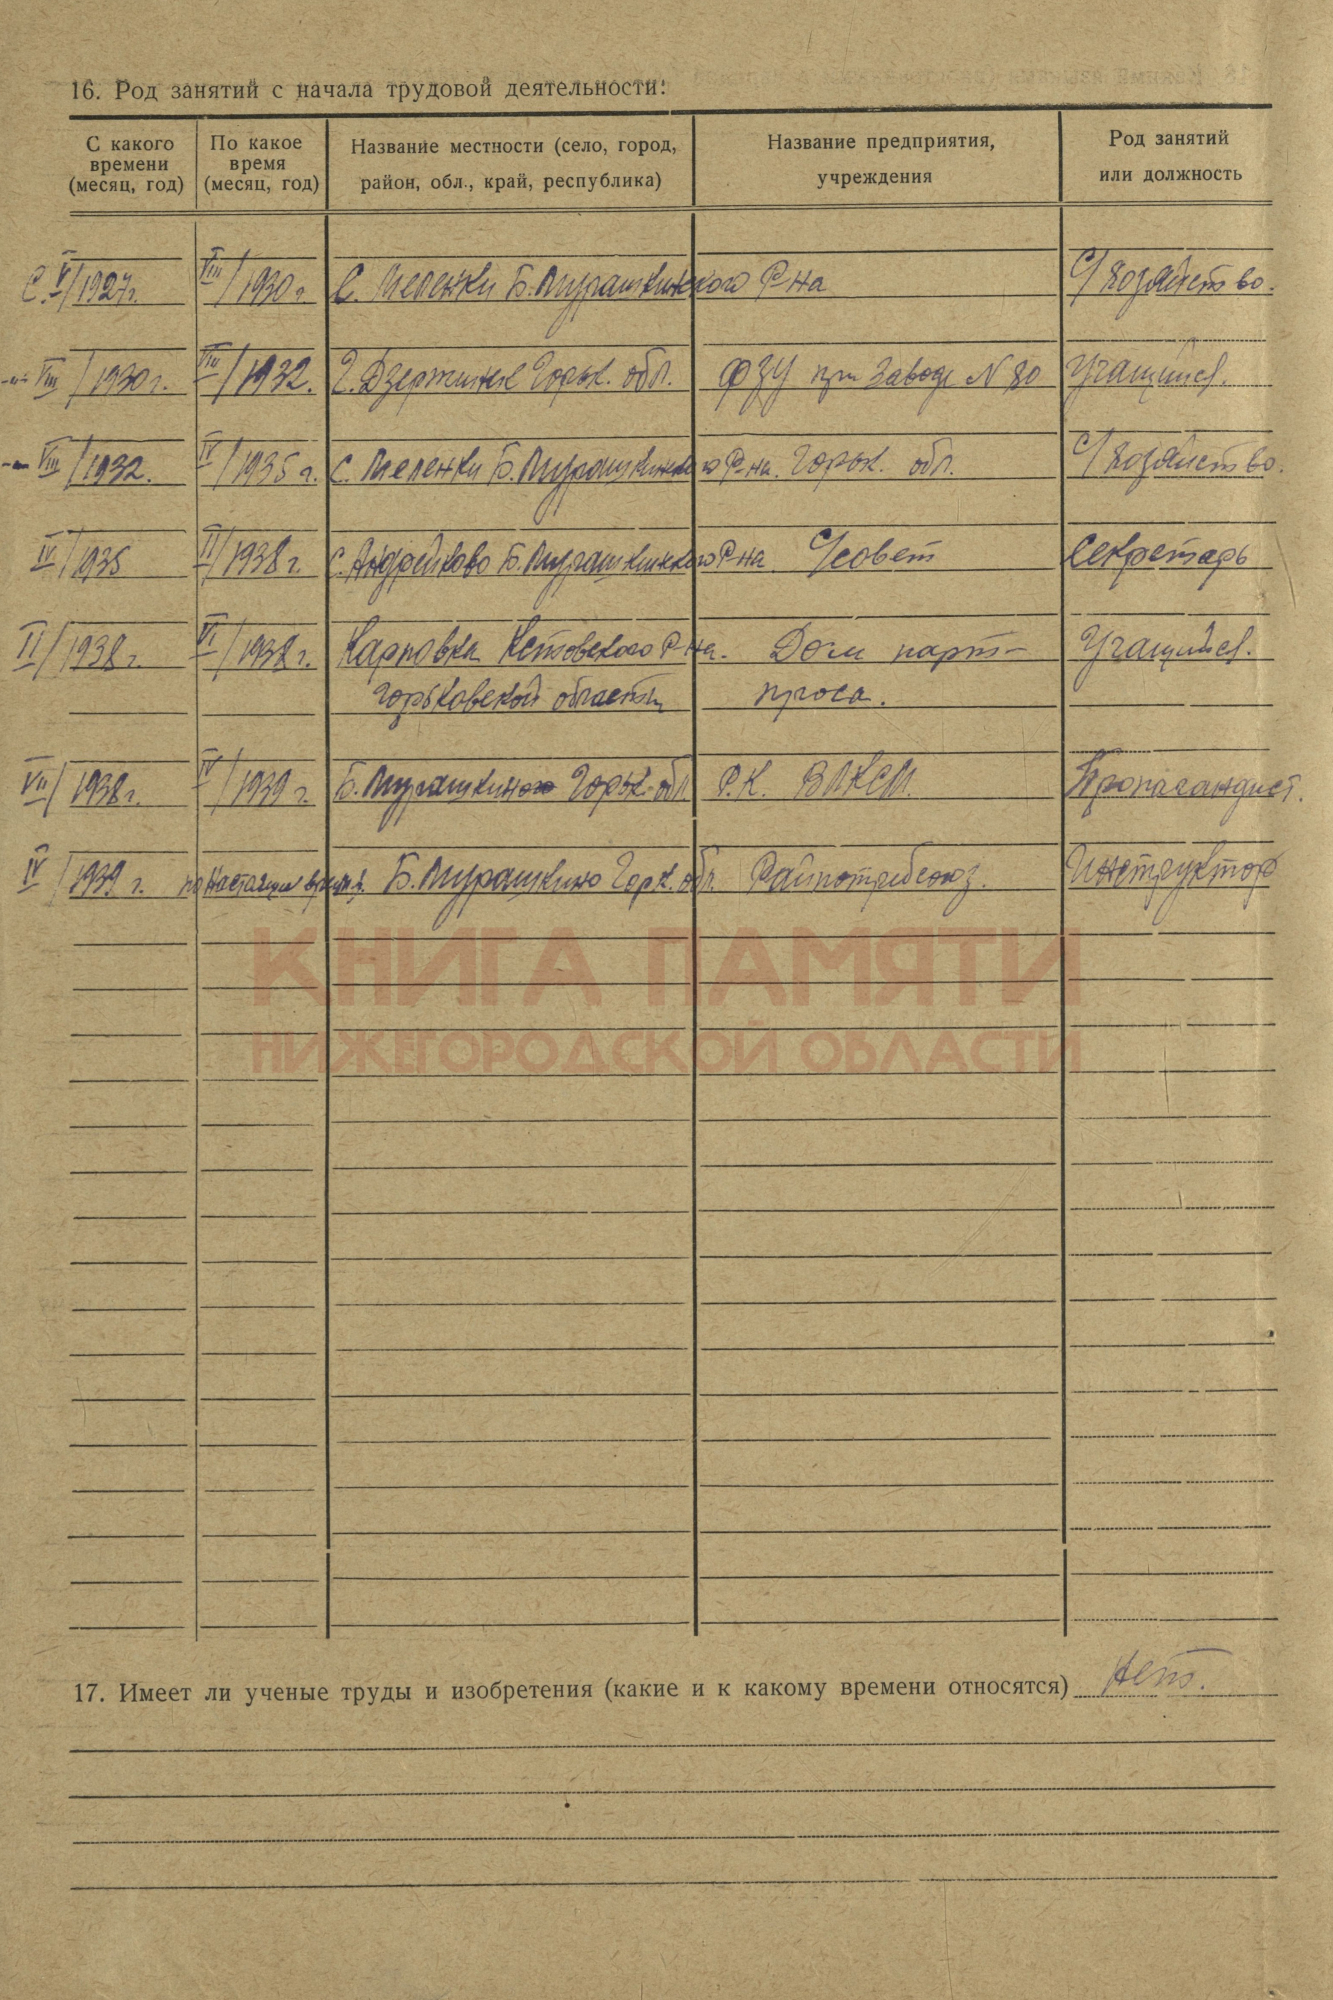 16. Род занятий с начала трудовой деятельности:
С какого времени (месяц, год) По какое время (месяц, год) Название местности (село, город, район, обл., край, республика) Название предприятия, учреждения Род занятий или должность
С. V/1927г. VIII/1930г С. Меленки Б.Мурашкинского Р-на С/хозяйство.
-"- VIII/1930г. VIII/1932. Г. Дзержинск Горьк. обл. ФЗУ при Заводе N 80 Учащийся.
-"- VIII/1932. IV/1935г. С. Меленки Б.Мурашкинского Р-на. Горьк. обл. С/хозяйство.
IV/1935 II/1938г. С. Андрейково Б.Мурашкинского Р-на С/совет Секретарь
II/1938г. VI/1938г. Карповка Кстовского Р-на. Дом парт- Учащийся.
Горьковской области проса.
VII/1938г. IV/1939г. Б.Мурашкино Горьк. обл Р.К. ВЛКСМ. Пропагандист.
IV/1939г. по Настоящее время. Б.Мурашкино Горк. обл. Райпотребсоюз. Инструктор
КНИГА ПАМЯТИ
НИЖЕГОРОДСКОЙ ОБЛАСТИ
17. Имеет ли ученые труды и изобретения (какие и к какому времени относятся) Нет.